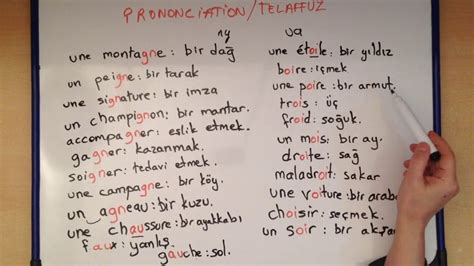 PRONONCIATION/TELAFFUZ
ny
une montagne: bir dağ
un peigne: bir tarak
une signature: bir imza
un champignon: bir mantar.
accompagner: eşlik etmek.
gagner: kazanmak.
soigner: tedavi etmek.
une campagne: bir köy.
un agneau: bir kuzu.
une chaussure: bir ayakkabı
faux: yanlış.
gauche: sol.
ua
une étoile: bir yıldız
boire: içmek
une poire: bir armut.
trois: üç
froid: soğuk.
un mois: bir ay.
droite: sağ
maladroit: sakar
une voiture: bir araba
choisir: seçmek.
un soir: bir akşam